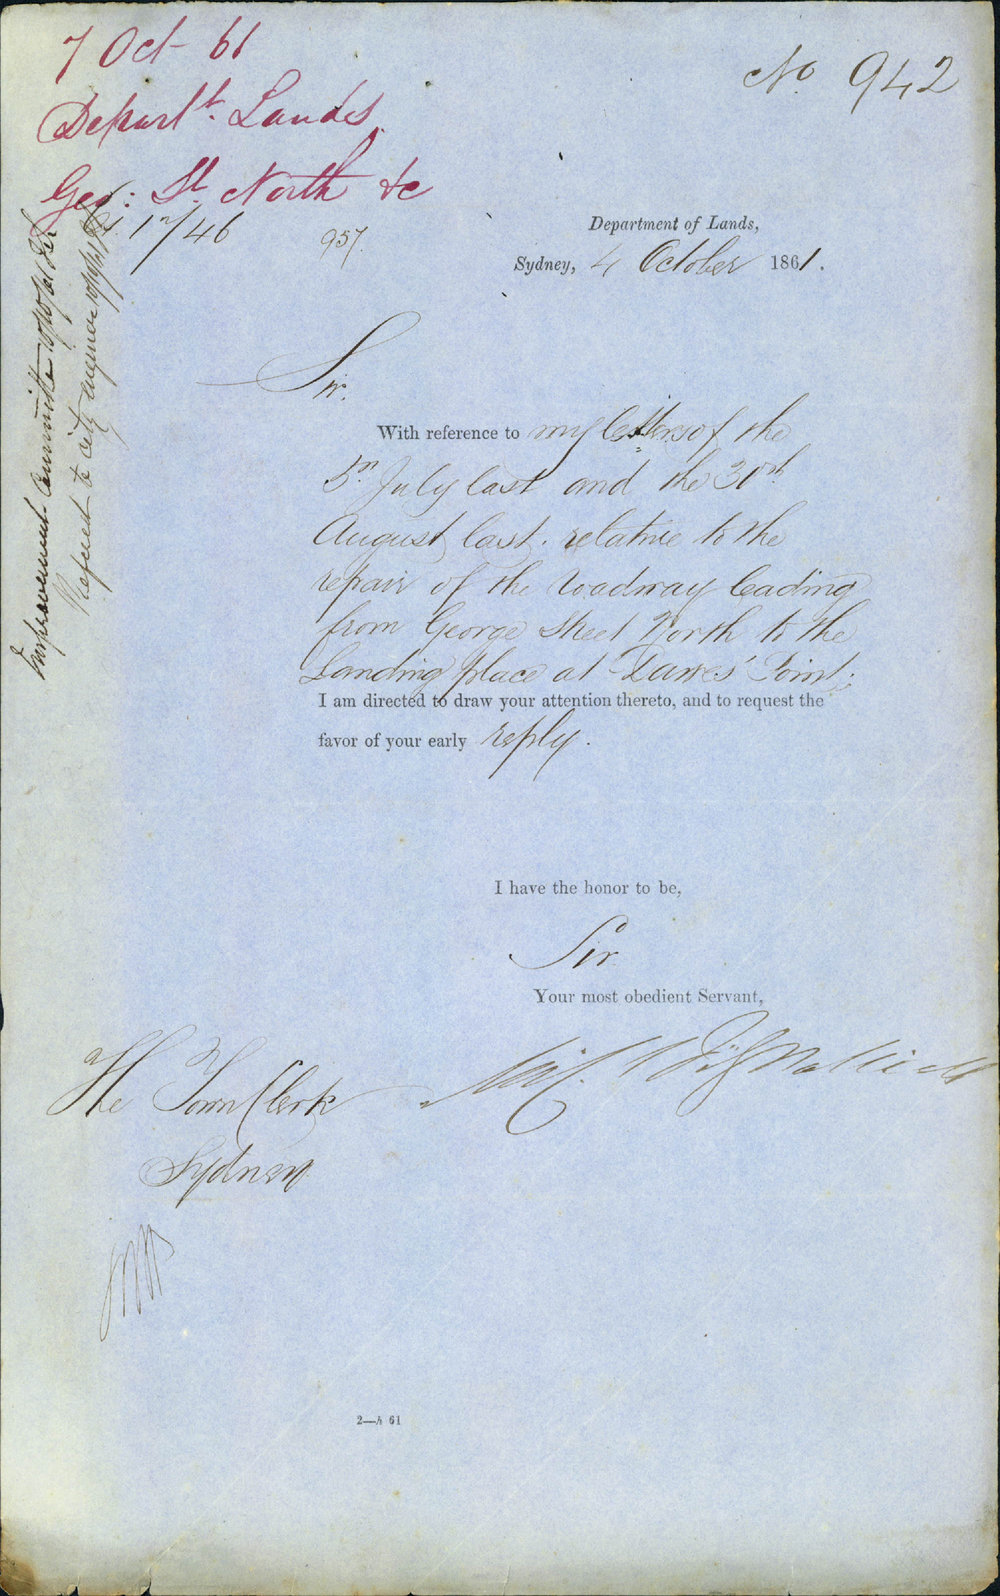 7 Oct 61
Departt. Lands
Geo: St. North &c
No 942
957
Department of Lands,
Sydney, 4 October 1861.
Sir.
With reference to my letters of the
July last and the 30th
August last. relative to the
repair of the roadway leading
from George Street North to the
Landing place at Dawes' Point.
I am directed to draw your attention thereto, and to request the
favor of your early reply.
I have the honor to be,
Sir
Your most obedient Servant,
The Town Clerk
Sydney
Improvement Committee
Referred to city engineer
2—h 61